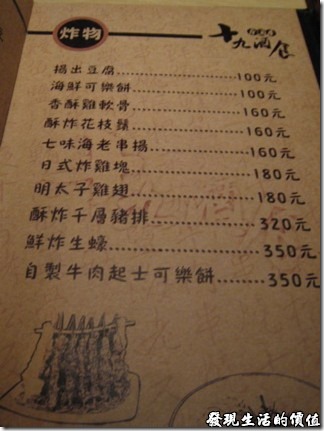 炸物
十九酒食
揚出豆腐 100元
海鮮可樂餅 100元
香酥雞軟骨 160元
酥炸花枝鬚 160元
七味海老串揚 160元
日式炸雞塊 180元
明太子雞翅 180元
酥炸千層豬排 320元
鮮炸生蠔 350元
自製牛肉起士可樂餅 350元
發現生活的價值